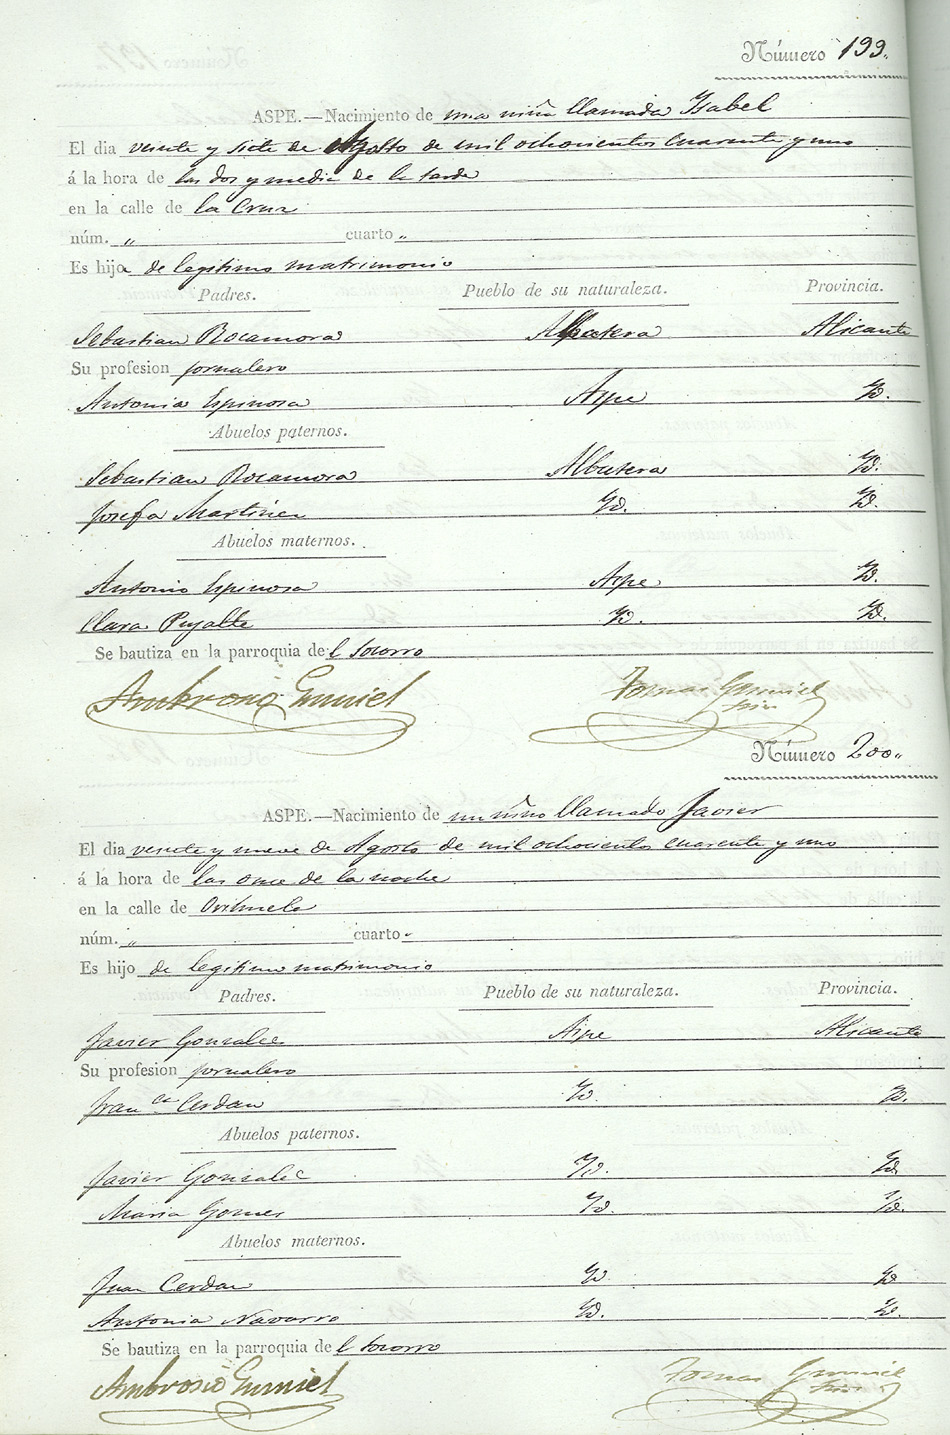 Número 199.
ASPE.—Nacimiento de una niña llamada Ysabel
El dia veinte y siete de Agosto de mil ochocientos cuarenta y uno
á la hora de las dos y media de la tarde
en la calle de la Cruz
núm. „ cuarto „
Es hija de legitimo matrimonio
Padres. Pueblo de su naturaleza. Provincia.
Sebastian Rocamora Albatera Alicante
Su profesion jornalero
Antonia Espinosa Aspe Yd.
Abuelos paternos.
Sebastian Rocamora Albatera Yd.
Josefa Martinez Yd. Yd.
Abuelos maternos.
Antonio Espinosa Aspe Yd.
Clara Pujalte Yd. Yd.
Se bautiza en la parroquia del Socorro
Ambrosio Gumiel Tomas Gumiel
Srio
Número 200.
ASPE.—Nacimiento de un niño llamado Javier
El dia veinte y nueve de Agosto de mil ochocientos cuarenta y uno
á la hora de las once de la noche
en la calle de Orihuela
núm. „ cuarto „
Es hijo de legitimo matrimonio
Padres. Pueblo de su naturaleza. Provincia.
Javier Gonzalez Aspe Alicante
Su profesion jornalero
Fran.ca Cerdan Yd. Yd.
Abuelos paternos.
Javier Gonzalez Yd. Yd.
Maria Gomez Yd. Yd.
Abuelos maternos.
Juan Cerdan Yd Yd
Antonia Navarro Yd. Yd.
Se bautiza en la parroquia del Socorro
Ambrosio Gumiel Tomas Gumiel
Srio